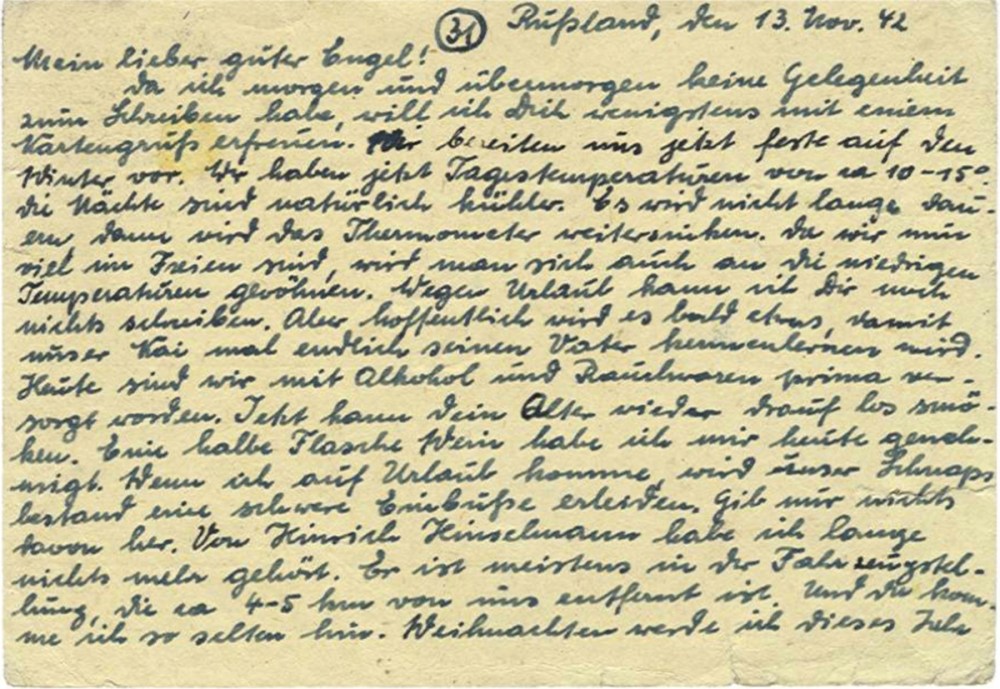 (31) Rußland, den 13. Nov. 42
Mein lieber guter Engel!
Da ich morgen und übermorgen keine Gelegenheit
zum Schreiben habe, will ich Dich wenigstens mit einem
Kartengruß erfreuen. Wir bereiten uns jetzt feste auf den
Winter vor. Wir haben jetzt Tagestemperaturen von ca 10-15°.
Die Nächte sind natürlich kühler. Es wird nicht lange dau-
ern, dann wird das Thermometer weitersinken. Da wir nun
viel im Freien sind, wird man sich auch an die niedrigen
Temperaturen gewöhnen. Wegen Urlaub kann ich Dir noch
nichts schreiben. Aber hoffentlich wird es bald etwas, damit
unser Kai mal endlich seinen Vater kennenlernen wird.
Heute sind wir mit Alkohol und Rauchwaren prima ver-
sorgt worden. Jetzt kann Dein Alter wieder drauf los smö-
ken. Eine halbe Flasche Wein habe ich mir heute geneh-
migt. Wenn ich auf Urlaub komme, wird unser Schnaps
bestand eine schwere Einbuße erleiden. Gib nur nichts
davon her. Von Hinrich Hinselmann habe ich lange
nichts mehr gehört. Er ist meistens in der Fahrzeugstel-
lung, die ca 4-5 km von uns entfernt ist. Und da kom-
me ich so selten hin. Weihnachten werde ich dieses Jahr